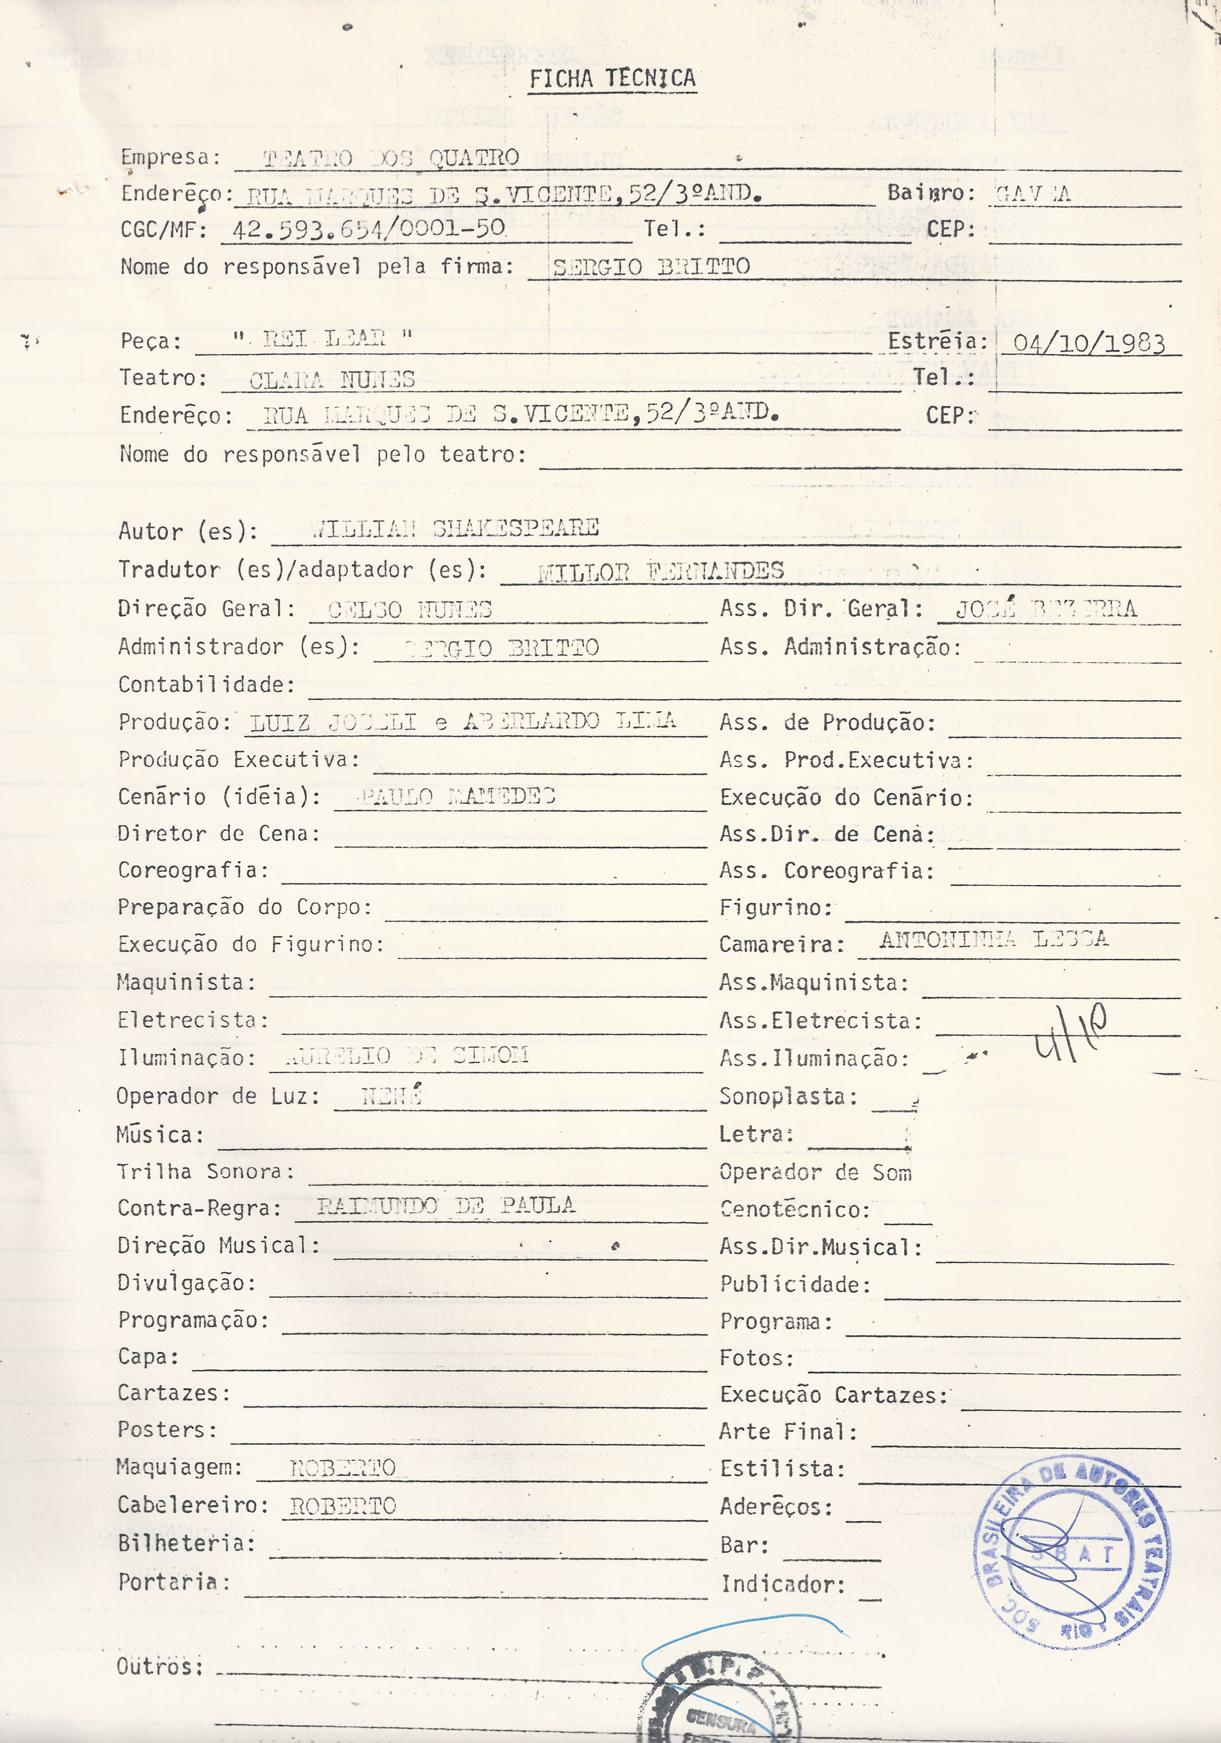 FICHA TÉCNICA
Empresa: TEATRO DOS QUATRO
Enderêço: RUA MARQUES DE S.VICENTE,52/3ºAND. Bairro: GAVEA
CGC/MF: 42.593.654/0001-50 Tel.: CEP:
Nome do responsável pela firma: SERGIO BRITTO
Peça: " REI LEAR " Estréia: 04/10/1983
Teatro: CLARA NUNES Tel.:
Enderêço: RUA MARQUES DE S.VICENTE,52/3ºAND. CEP:
Nome do responsável pelo teatro:
Autor (es): WILLIAN SHAKESPEARE
Tradutor (es)/adaptador (es): MILLOR FERNANDES
Direção Geral: CELSO NUNES Ass. Dir. Geral: JOSÉ BEZERRA
Administrador (es): SERGIO BRITTO Ass. Administração:
Contabilidade:
Produção: LUIZ JOSELI e ABERLARDO LIMA Ass. de Produção:
Produção Executiva: Ass. Prod.Executiva:
Cenário (idéia): PAULO MAMEDES Execução do Cenário:
Diretor de Cena: Ass.Dir. de Cena:
Coreografia: Ass. Coreografia:
Preparação do Corpo: Figurino:
Execução do Figurino: Camareira: ANTONINHA LESSA
Maquinista: Ass.Maquinista:
Eletrecista: Ass.Eletrecista:
4/10
Iluminação: AURELIO DE SIMOM Ass.Iluminação:
Operador de Luz: NENÉ Sonoplasta:
Música: Letra:
Trilha Sonora: Operador de Som
Contra-Regra: RAIMUNDO DE PAULA Cenotécnico:
Direção Musical: Ass.Dir.Musical:
Divulgação: Publicidade:
Programação: Programa:
Capa: Fotos:
Cartazes: Execução Cartazes:
Posters: Arte Final:
Maquiagem: ROBERTO Estilista:
Cabelereiro: ROBERTO Aderêços:
Bilheteria: Bar:
Portaria: Indicador:
SOC BRASILEIRA DE AUTORES TEATRAIS
SBAT
Outros:
CENSURA